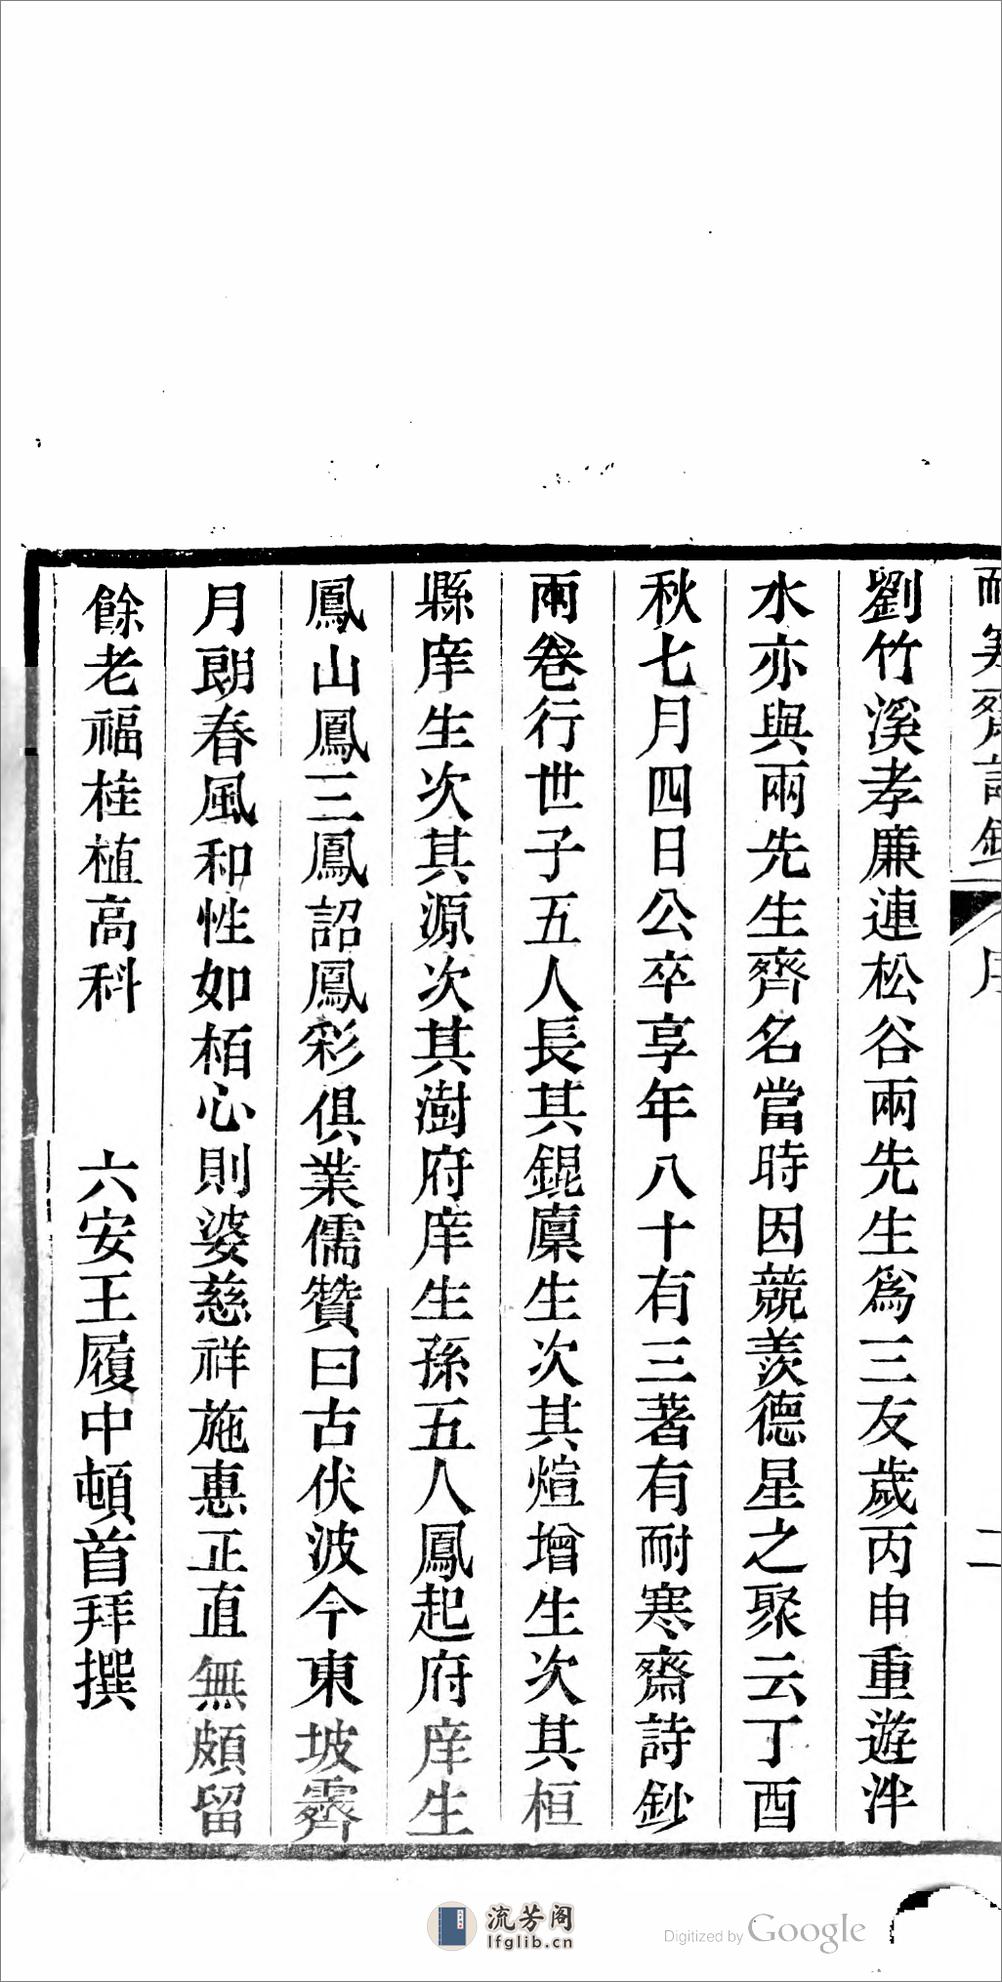 耐寒齋詩鈔 序 二
劉竹溪孝廉連松谷兩先生爲三友歲丙申重遊泮
水亦與兩先生齊名當時因競羨德星之聚云丁酉
秋七月四日公卒享年八十有三著有耐寒齋詩鈔
兩卷行世子五人長其錕廩生次其煊增生次其桓
縣庠生次其源次其澍府庠生孫五人鳳起府庠生
鳳山鳳三鳳詔鳳彩俱業儒贊曰古伏波今東坡霽
月朗春風和性如栢心則婆慈祥施惠正直無頗留
餘老福桂植高科 六安王履中頓首拜撰
流芳阁
lfglib.cn
Digitized by Google